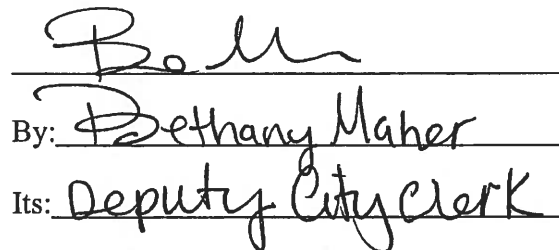 By: Bethany Maher
Its: Deputy City Clerk